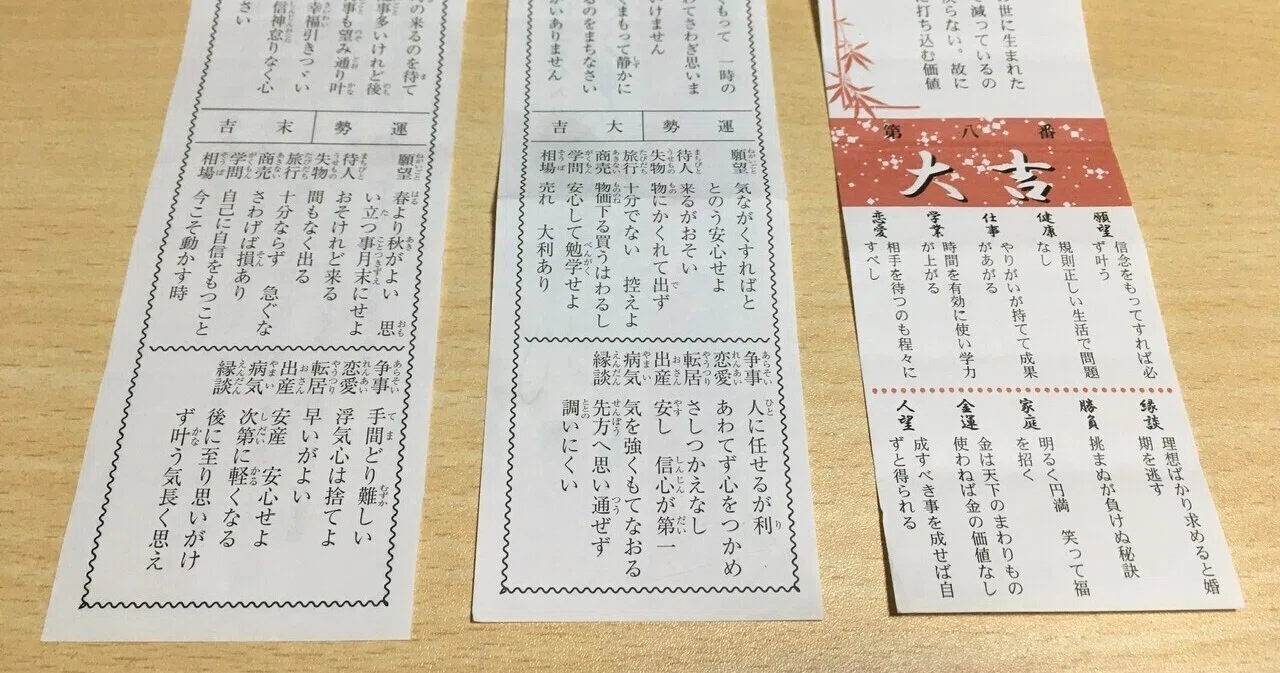 の来るのを待て
事多いけれど後
事も望み通り叶
幸福引きつゞい
信神怠りなく心
さい
運勢 末吉
願望
待人
失物
旅行
商売
学問
相場
春より秋がよい 思
い立つ事月末にせよ
おそけれど来る
間もなく出る
十分ならず 急ぐな
さわげば損あり
自己に自信をもつこと
今こそ動かす時
争事
恋愛
転居
出産
病気
縁談
手間どり難しい
浮気心は捨てよ
早いがよい
安産 安心せよ
次第に軽くなる
後に至り思いがけ
ず叶う気長く思え
くもって 一時の
わてさわぎ思いま
いません
くまもって静かに
るのをまちなさい
がいありません
運勢 大吉
願望
待人
失物
旅行
商売
学問
相場
気ながくすればと
とのう安心せよ
来るがおそい
物にかくれて出ず
十分でない 控えよ
物価下る買うはわるし
安心して勉学せよ
売れ 大利あり
争事
恋愛
転居
出産
病気
縁談
人に任せるが利
あわてず心をつかめ
さしつかえなし
安し 信心が第一
気を強くもてなおる
先方へ思い通ぜず
調いにくい
世に生まれた
減っているの
戻らない。故に
打ち込む価値
第八番
大吉
願望 信念をもってすれば必
ず叶う
健康 規則正しい生活で問題
なし
仕事 やりがいが持てて成果
があがる
学業 時間を有効に使い学力
が上がる
恋愛 相手を待つのも程々に
すべし
縁談 理想ばかり求めると婚
期を逃す
勝負 挑まぬが負けぬ秘訣
家庭 明るく円満 笑って福
を招く
金運 金は天下のまわりもの
使わねば金の価値なし
人望 成すべき事を成せば自
ずと得られる